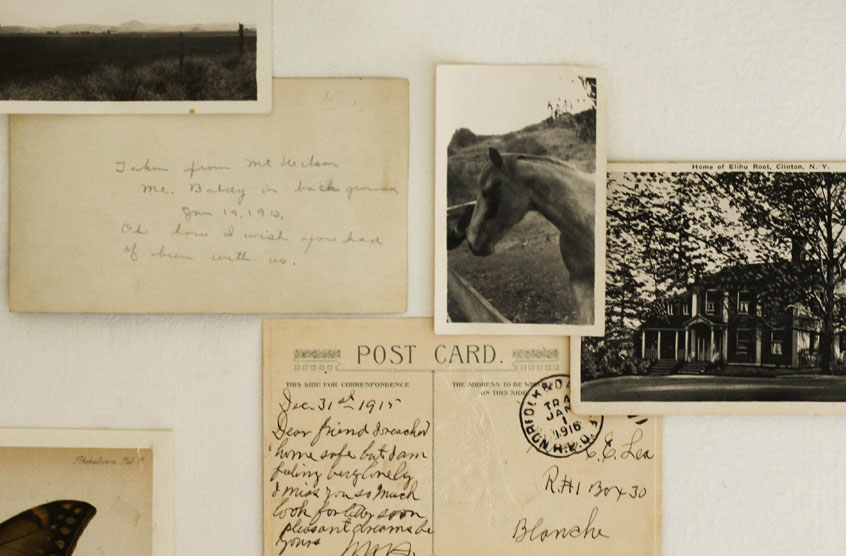 Taken from Mt Wilson
Mt. Baldy in back ground
Jan 19, 1913.
Oh how I wish you had
of been with us.
Home of Elihu Root, Clinton, N. Y.
POST CARD.
THIS SIDE FOR CORRESPONDENCE
THE ADDRESS TO BE
ON THIS SIDE
Dec. 31st 1915
Dear friend I reached
home safe but I am
feeling very lonely
I miss you so much
look for letter soon
pleasant dreams be
yours
NORFOLK
JAN
1
1916
R.P.O.
C. E. Lea
R#1 Box 30
Blanche